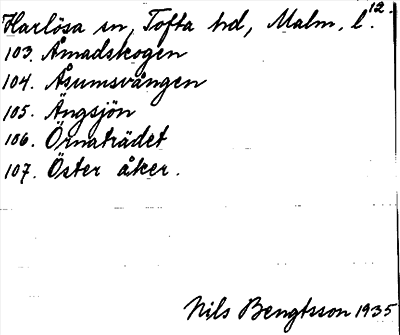 12.
Harlösa sn, Tofta hd, Malm. l.
103. Åmadskogen
104. Åsumsvången
105. Ängsjön
106. Örnaträdet
107. Öster åker.
Nils Bengtsson 1935